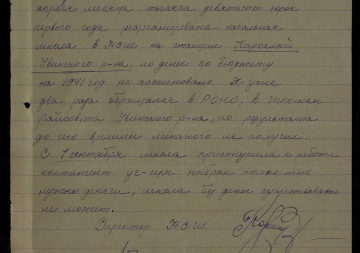 месяца тысяча девятсот сорок
первого года реорганизована начальная
школа в НСШ на станции
Увинского р-на, но денег по бюджету
на 1941 год не ассигновано. Я уже
два раза обращался в РОНО, в исполком
Райсовета Увинского р-на, но результата
до сего времени никакого не получил.
С 1 сентября школа приступила к работе
контингент уч-ихся
нужны деньги, школа без денег существовать
не может.
Директор НСШ